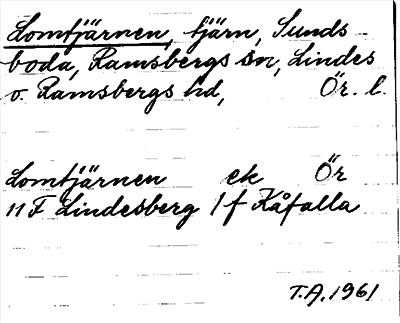 Lomtjärnen, tjärn, Sunds
boda, Ramsbergs sn, Lindes
o. Ramsbergs hd, Ör. l.
Lomtjärnen ek Ör
11 F Lindesberg 1 f Kåfalla
T.A. 1961